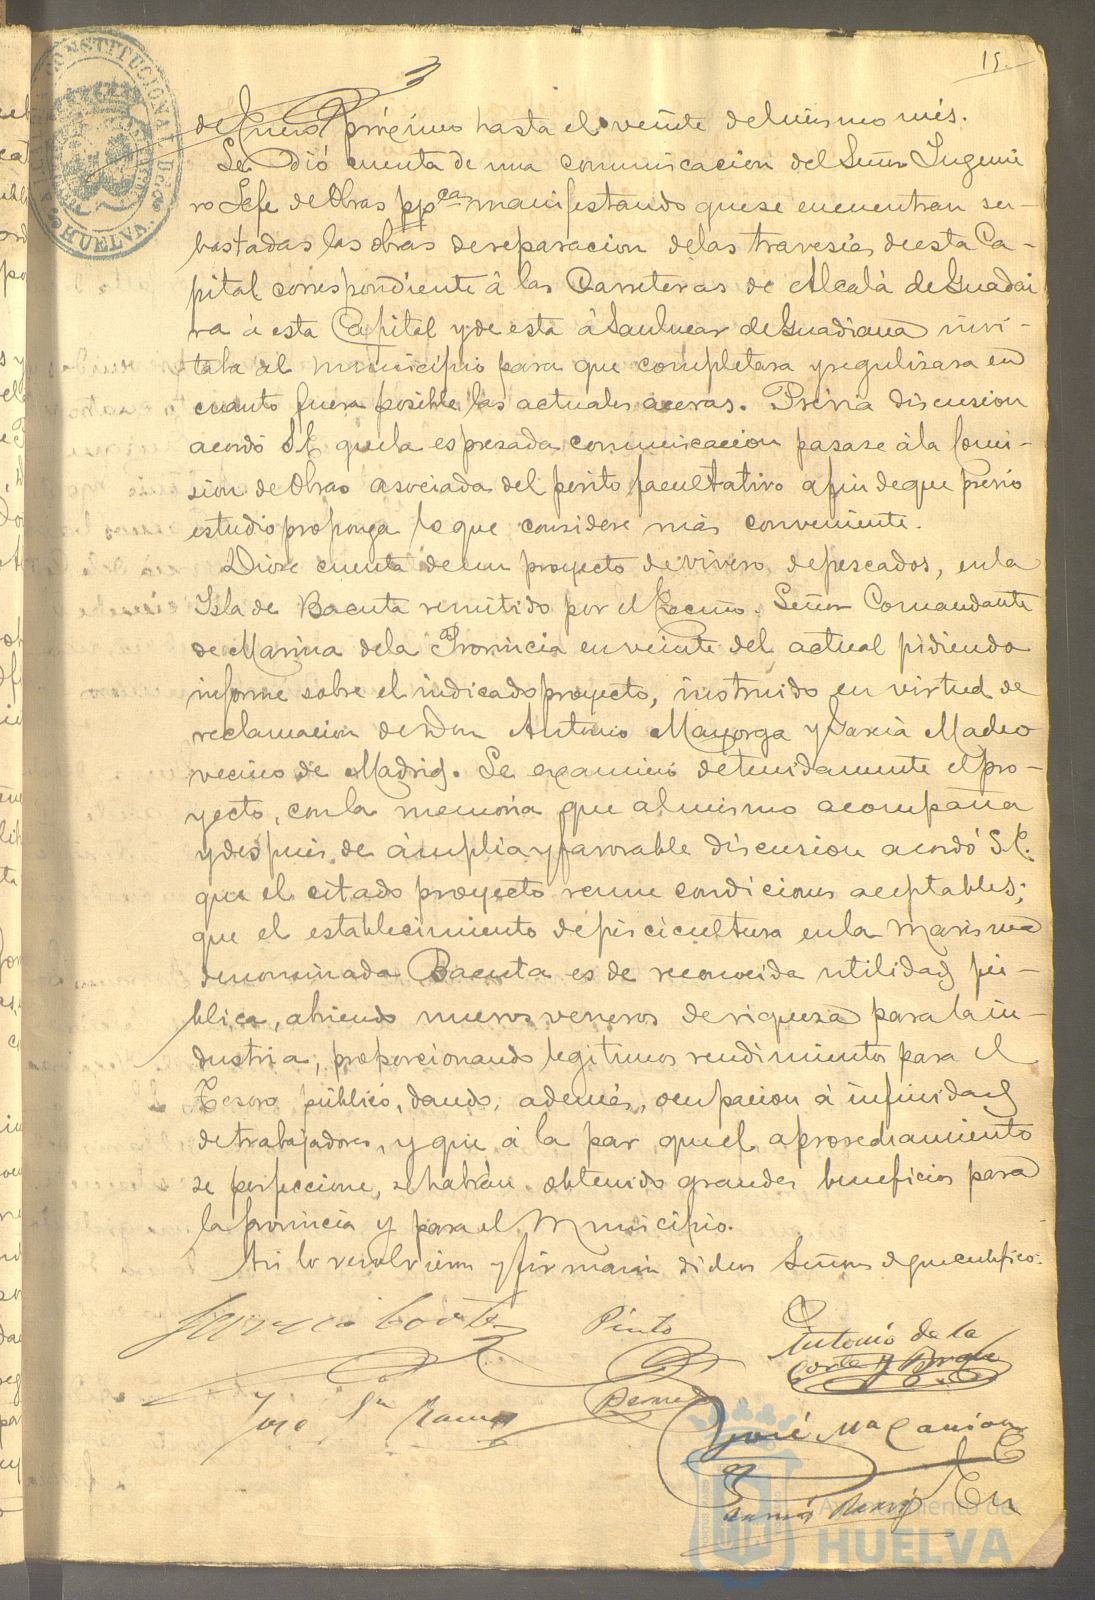 15.
CONSTITUCIONAL DE
HUELVA.
de Enero próximo hasta el veinte del mismo més.
Se dió cuenta de una comunicacion del Señor Ingenie
ro Jefe de Obras ppcas manifestando que se encuentran su-
bastadas las obras de reparacion de las travesías de esta Ca-
pital correspondiente á las Carreteras de Alcalá de Guadai
ra á esta Capital y de esta á Sanlucar de Guadiana invi-
taba al município para que completara y regulizara en
cuanto fuera posible las actuales aceras. Prévia discusion
acordó S.E. que la espresada comunicacion pasase á la Comi-
sion de Obras asociada del perito facultativo a fin de que prévio
estudio proponga lo que considere más conveniente.
Dióse cuenta de un proyecto de vivero de pescados, en la
Isla de Bacuta remitido por el Excmo. Señor Comandante
de Marina de la Provincia en veinte del actual pidiendo
informe sobre el indicado proyecto, instruido en virtud de
reclamacion de Don Antonio Mayorga y García
vecino de Madrid. Se examinó detenidamente el pro-
yecto, con la memoria que al mismo acompaña
y despues de ámplia y favorable discusion acordó S.E.
que el citado proyecto reune condiciones aceptables;
que el establecimiento de piscicultura en la Marisma
denominada Bacuta es de reconocida utilidad pú-
blica, abriendo nuevos veneros de riqueza para la in-
dustria, proporcionando legitimos rendimientos para el
Tesoro público, dando, además, ocupacion á infinidad
de trabajadores, y que á la par que el aprosechamiento
se perfeccione, se habrán obtenido grandes beneficios para
la provincia y para el Municipio.
Asi lo resolvieron y firmarán dichos Señores de que certifico.
Garcia Cortes
Pinto
Antonio de la
Corte y
José Ramos
José Ma
En
Ayuntamiento de
HUELVA